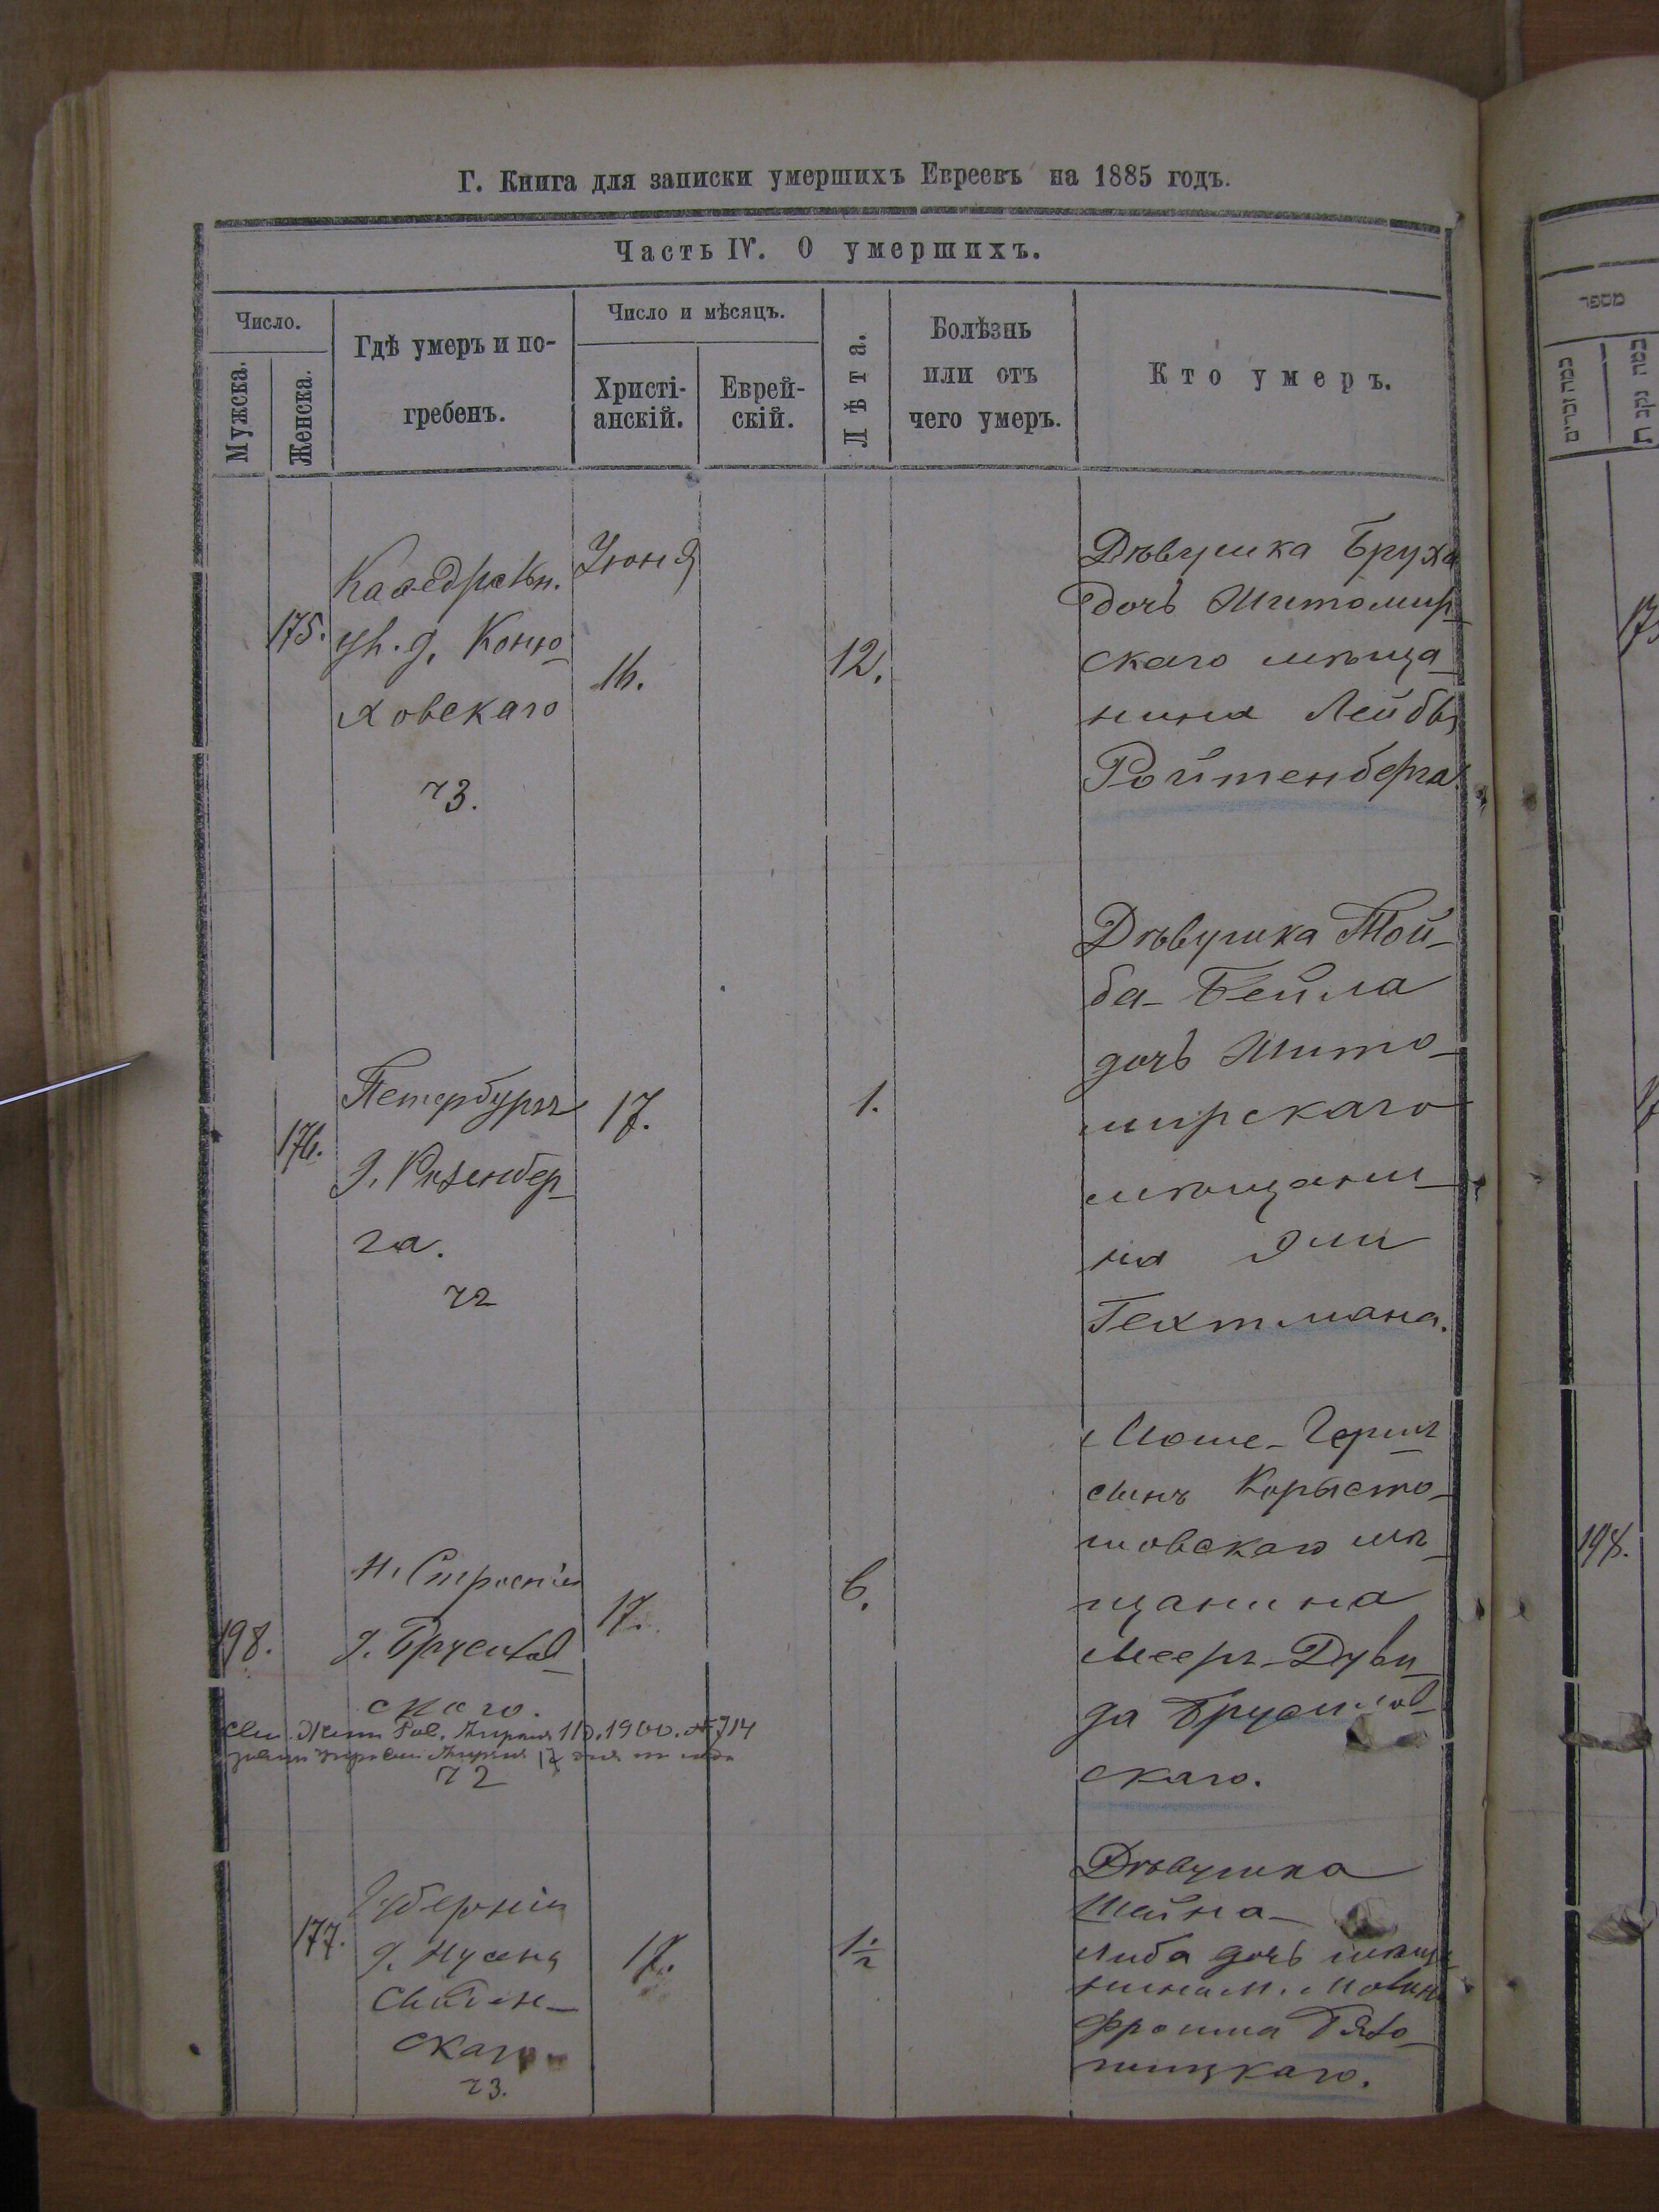 Г. Книга для записки умершихъ Евреевъ на 1885 годъ.
Часть IV. О умершихъ.
Число.
Мужска.
Женска.
Гдѣ умеръ и по-
гребенъ.
Число и мѣсяцъ.
Христі-
анскій.
Еврей-
скій.
Лѣта.
Болѣзнь
или отъ
чего умеръ.
Кто умеръ.
175.
Каѳедральн.
ул. д. Коню-
ховскаго
73.
Іюня
16.
12.
Дѣвушка Бруха
дочь Житомир-
скаго мѣща-
нина Лейбы
Ройтенберга.
176.
Петербург
д. Розенбер-
га.
72
17.
1.
Дѣвушка Той-
ба-Бейла
дочь Жито-
мирскаго
мѣщани-
на Эли
Гехтмана.
198.
д. Брусилов-
скаго.
72
17.
6.
Моше-Герш
сынъ Коросты-
шовскаго мѣ-
щанина
Мееръ-Дуви-
да Брусилов-
скаго.
1900. № 714
177.
Губерніи
д. Нусена
скаго
73.
17.
1½
Дѣвушка
Шейна-
Либа дочь мѣща-
нина м.
Фроима